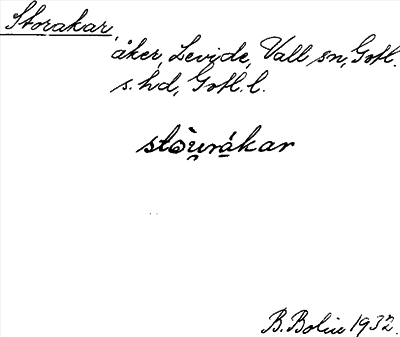 Storakar,
åker, Levide, Vall sn, Gotl.
s. hd, Gotl. l.
stòu̯rákar
B. Bolin 1932.